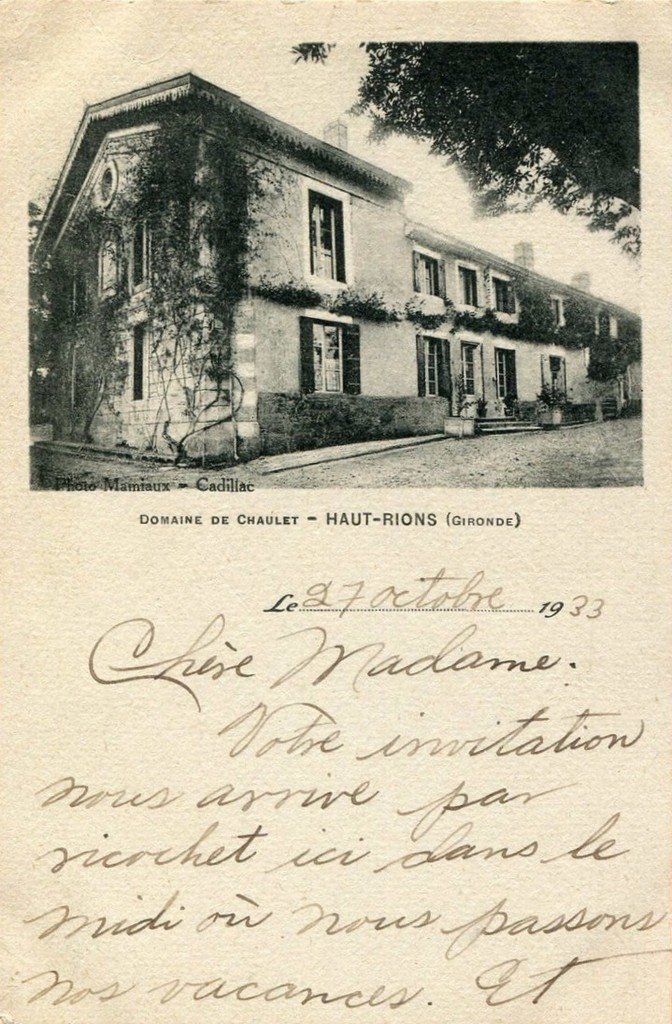 Photo Mamiaux - Cadillac
DOMAINE DE CHAULET - HAUT-RIONS (GIRONDE)
Le 27 octobre 1933
Chère Madame.
Votre invitation
nous arrive par
ricochet ici dans le
midi où nous passons
nos vacances. Et